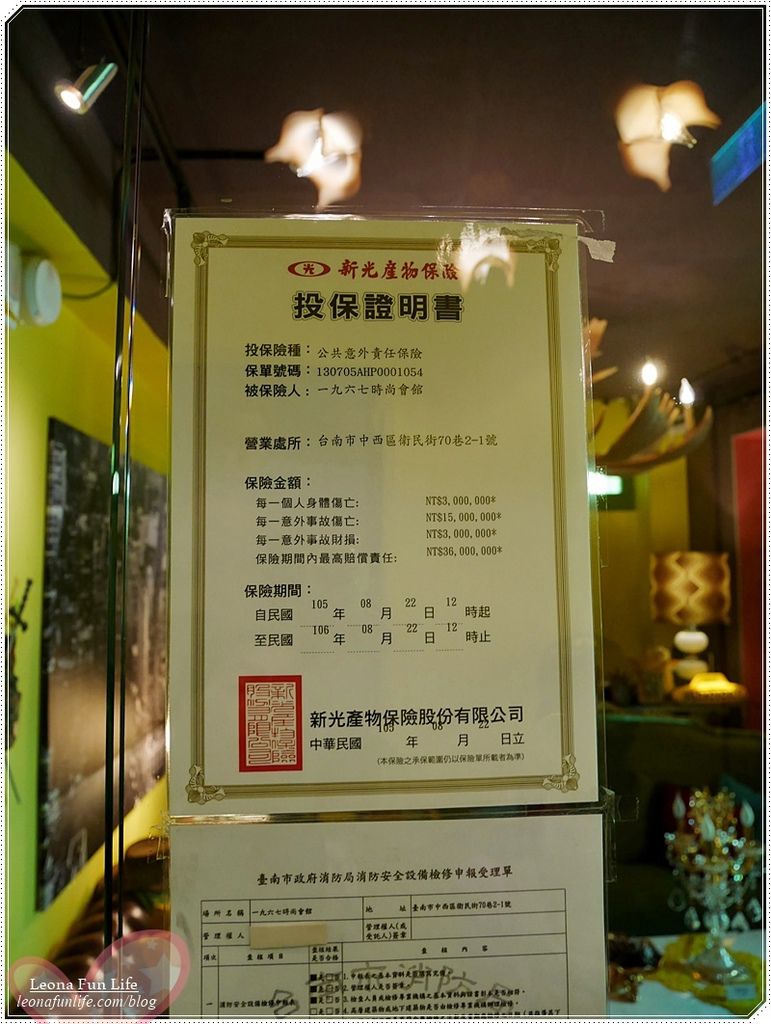 新光產物保險
投保證明書
投保險種：公共意外責任保險
保單號碼：130705AHP0001054
被保險人：一九六七時尚會館
營業處所：台南市中西區衛民街70巷2-1號
保險金額：
每一個人身體傷亡: NT$3,000,000*
每一意外事故傷亡: NT$15,000,000*
每一意外事故財損: NT$3,000,000*
保險期間內最高賠償責任: NT$36,000,000*
保險期間：
自民國 105 年 08 月 22 日 12 時起
至民國 106 年 08 月 22 日 12 時止
新光產物保險股份有限公司
中華民國 105 年 08 月 22 日立
(本保險之承保範圍仍以保險單所載者為準)
臺南市政府消防局消防安全設備檢修申報受理單
場所名稱 一九六七時尚會館 地址 臺南市中西區衛民街70巷2-1號
管理權人 管理權人(或受託人)簽章
項次 查核項目 查核結果是否合格 查核內容
一 消防安全設備檢修申報表
Leona Fun Life
leonafunlife.com/blog